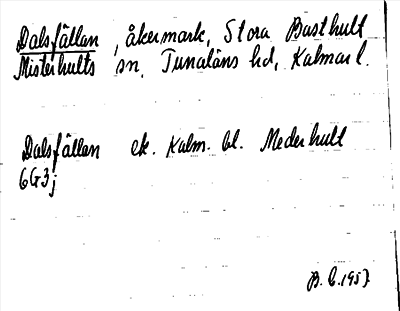 Dalsfällan, åkermark, Stora Basthult
Misterhults sn, Tunaläns hd, Kalmar l.
Dalsfällan ek. Kalm. bl. Mederhult
6G3j
B. C. 1957